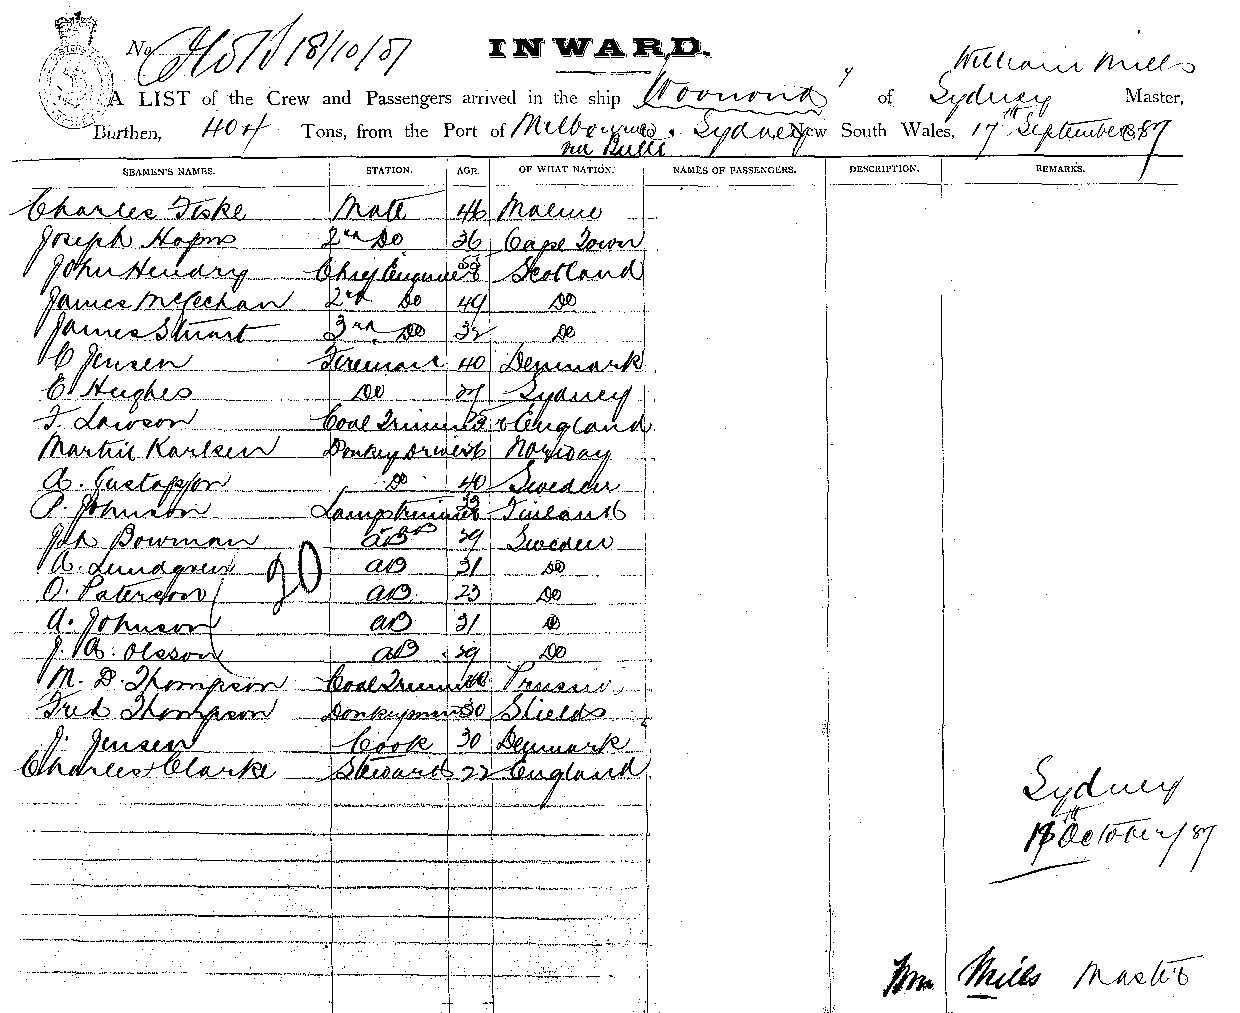 No 18/10/87
INWARD.
William Mills
A LIST of the Crew and Passengers arrived in the ship Woonona of Sydney Master,
Burthen, 404 Tons, from the Port of Melbourne. Sydney New South Wales, 17th September 87
via Bulli
SEAMEN'S NAMES. STATION. AGE. OF WHAT NATION. NAMES OF PASSENGERS. DESCRIPTION. REMARKS.
Charles Fiske Mate 46
Joseph 2nd Do 36 Cape Town
John Hendry Chief Engineer Scotland
James McGechan 2nd Do 49 Do
James Stuart 3rd Do 32 Do
C Jensen Fireman 40 Denmark
E. Hughes Do 27 Sydney
F. Lawson Coal Trimmer 25 England
Martin Karlsen Donkey Driver Norway
A. Gustafson Do 40 Sweden
P. Johnson Lamptrimmer Finland
Bowman AB 39 Sweden
A. Lundgren AB 31 Do
20
O. Paterson AB 23 Do
A. Johnson AB 31 Do
J. A. Olsson AB 39 Do
M. D. Thompson Coal Trimmer 40 Prussia
Fred Thompson Donkeyman 30 Shields
J. Jensen Cook 30 Denmark
Charles Clarke Steward 22 England
Sydney
October/87
Wm Mills Master